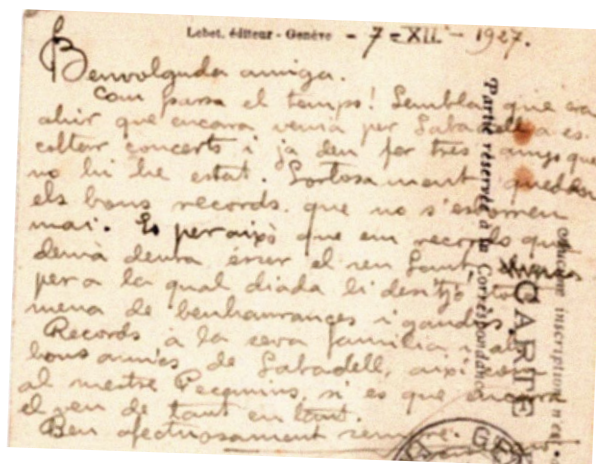 Lebet, éditeur - Genève - 7 - XII. - 1927.
Benvolguda amiga.
Com passa el temps! Sembla que era
ahir que encara venia per Sabadell a es-
coltar concerts i ja deu fer tres anys que
no hi he estat. Sortosament queden
els bons records que no s'esborren
mai. Es per això que em recordo que
demà deurà ésser el seu Sant,
per a la qual diada li desitjo tota
mena de benhaurances i gaudis.
Records a la seva familia i als
bons amics de Sabadell, així com
al mestre Pecquins, si es que encara
el veu de tant en tant.
Ben afectuosament sempre.
Partie réservée à la Correspondance
CARTE
Aucune inscription n'est
GE